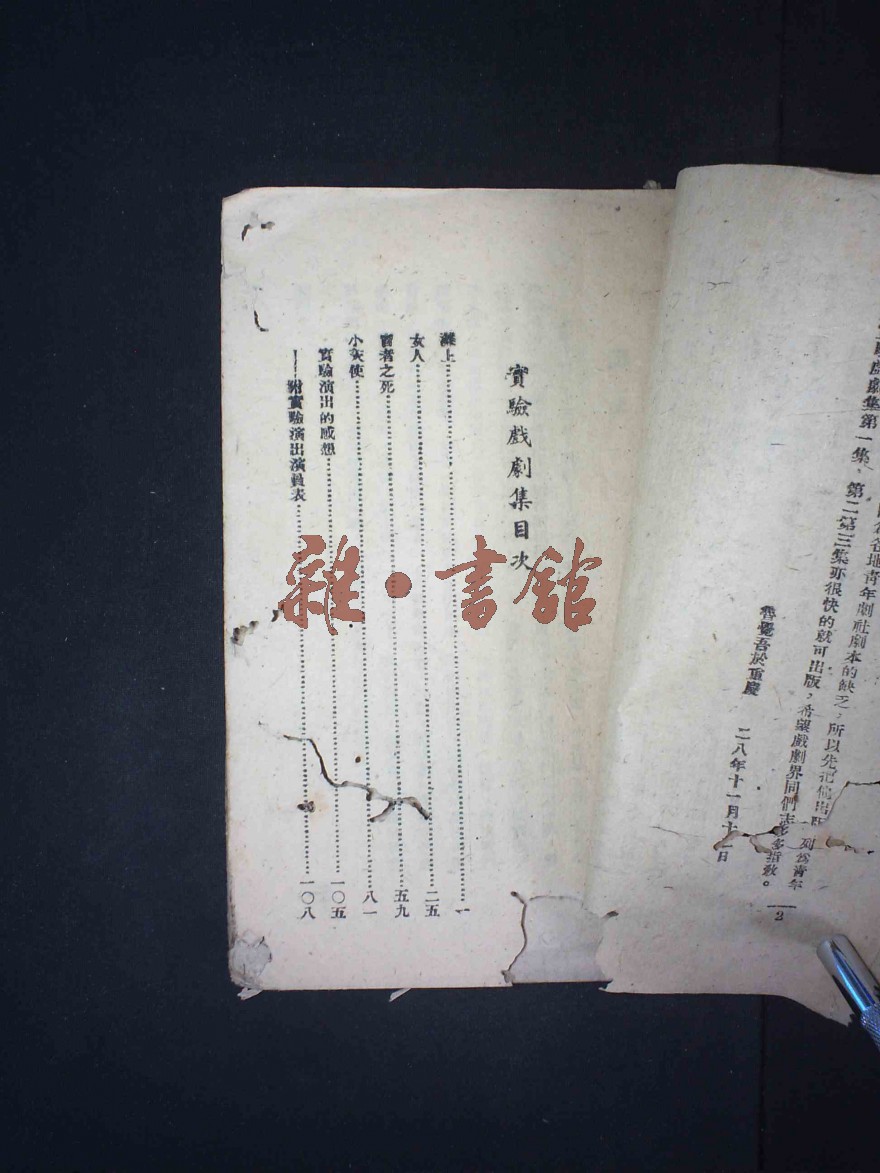 驗戲劇集第一集,
各地青年劇社劇本的缺乏,所以先把他出版
第二第三集亦很快的就可出版,希望戲劇界同們志多多指敎。
列爲青年
魯覺吾於重慶 二八年十一月十 日
2
實驗戲劇集目次
灘上 一
女人 二五
者之死 五九
小天使 八一
實驗演出的感想 一〇五
——附實驗演出演員表 一〇八
雜·書館